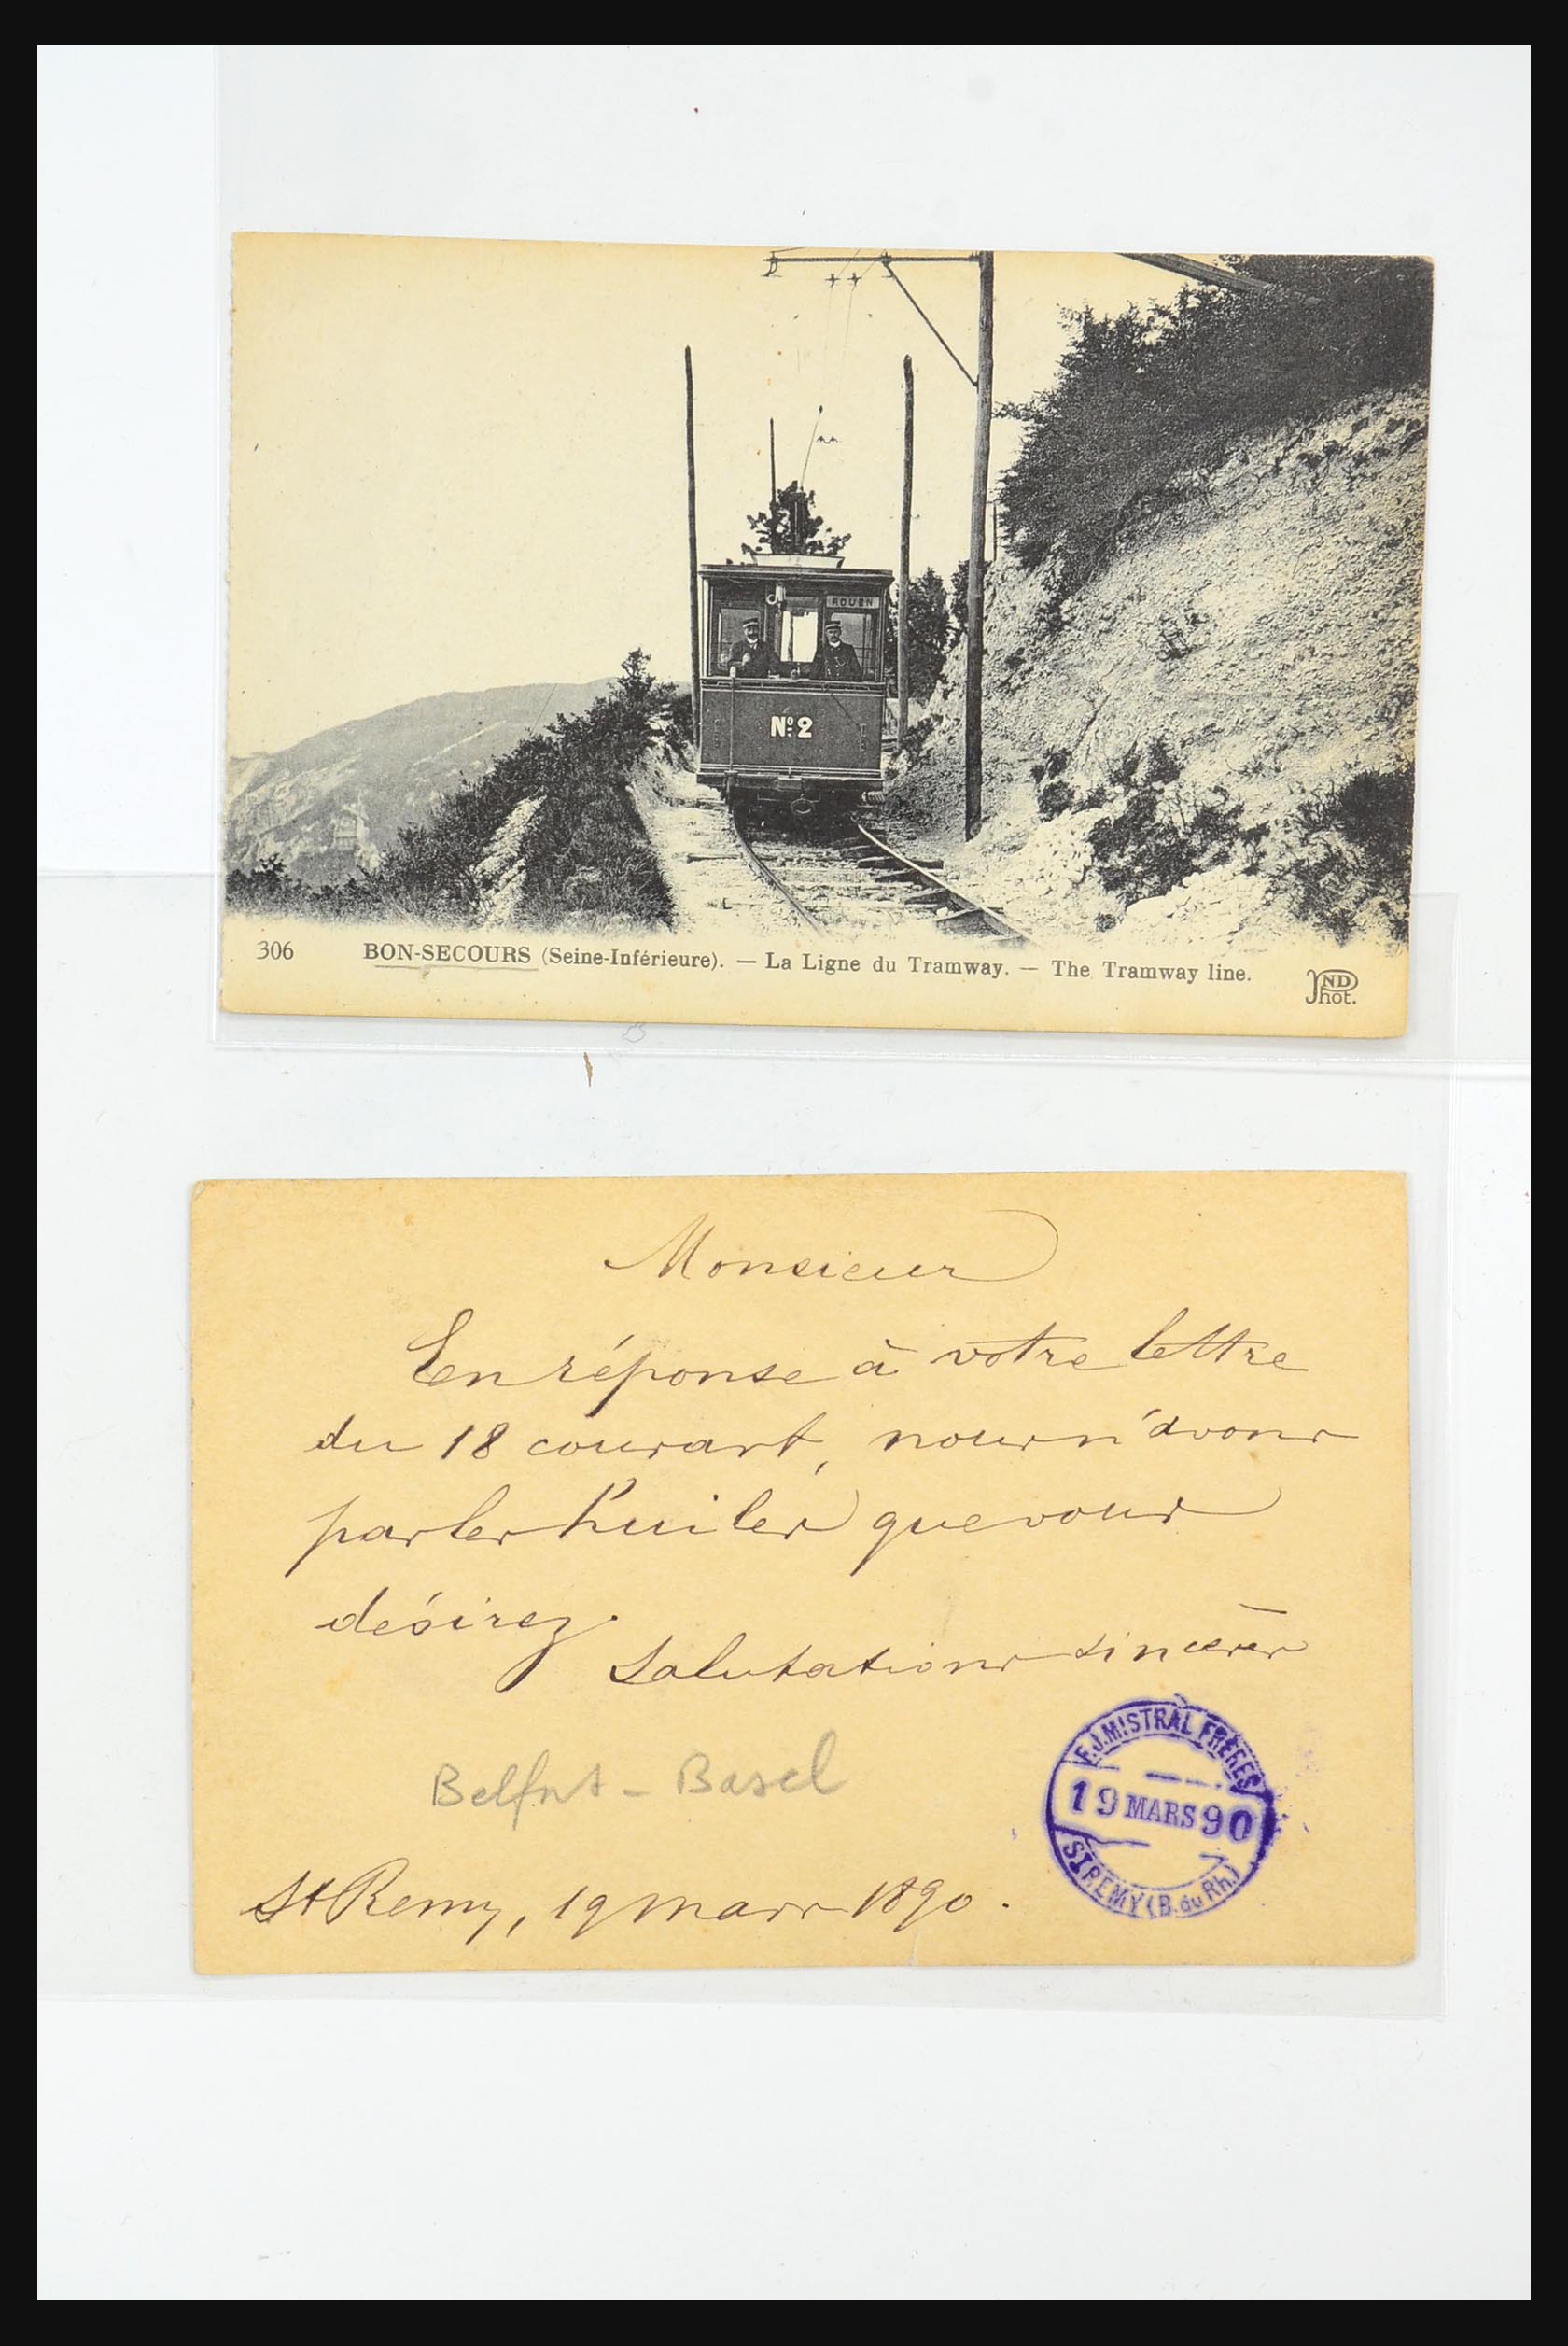 ROUEN
Nº 2
306 BON-SECOURS (Seine-Inférieure). — La Ligne du Tramway. — The Tramway line.
ND
Phot.
Monsieur
En réponse à votre lettre
du 18 courant, nous n'avons
pas les huiles que vous
désirez.
Salutations sincères
Belfort - Basel
F.J. MISTRAL FRÈRES
19 MARS 90
ST REMY (B. du Rh.)
St Remy, 19 mars 1890.